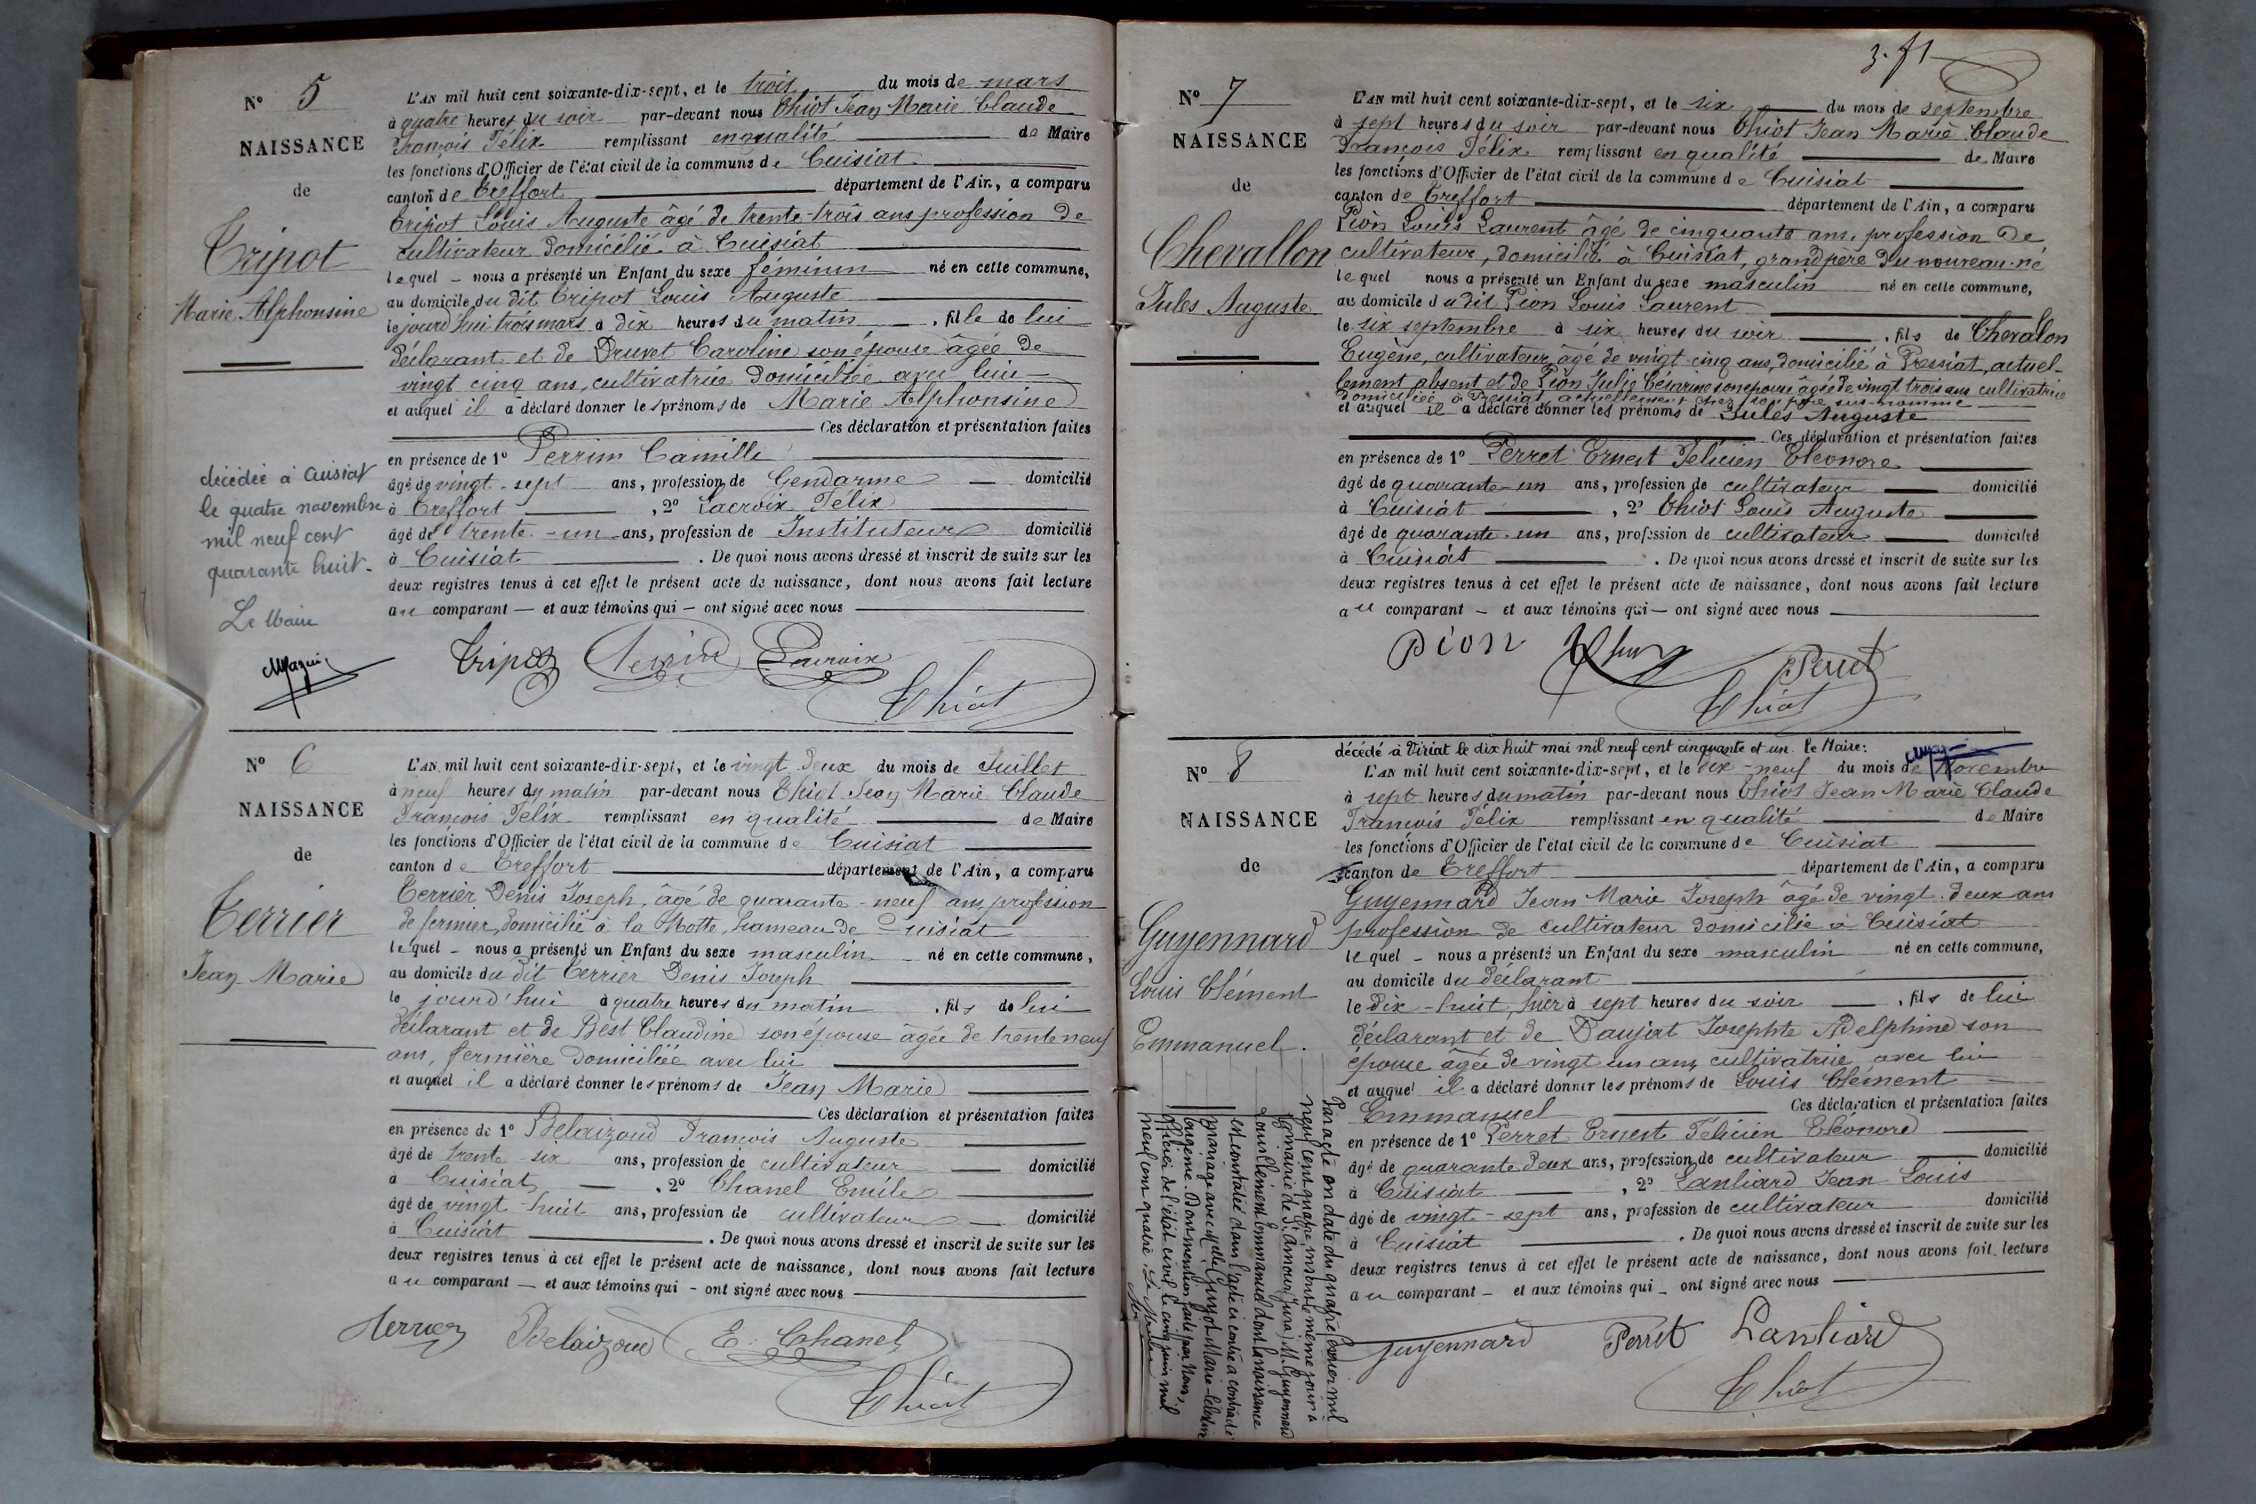 N° 5
NAISSANCE
de
Tripot
Marie Alphonsine
décédée à Cuisiat
le quatre novembre
mil neuf cent
quarante huit.
Le Maire
L'AN mil huit cent soixante-dix-sept, et le trois du mois de mars
à quatre heures du soir par-devant nous Thiot Jean Marie Claude
François Félix remplissant en qualité de Maire
les fonctions d'Officier de l'état civil de la commune de Cuisiat
canton de Treffort département de l'Ain, a comparu
Tripot Louis Auguste âgé de trente-trois ans profession de
cultivateur domicilié à Cuisiat
lequel - nous a présenté un Enfant du sexe féminin né en cette commune,
au domicile du dit Tripot Louis Auguste
le jourd'hui trois mars à dix heures du matin , fille de lui
déclarant et de Druvet Caroline son épouse âgée de
vingt cinq ans, cultivatrice domiciliée avec lui
et auquel il a déclaré donner les prénoms de Marie Alphonsine
Ces déclaration et présentation faites
en présence de 1° Perrin Camille
âgé de vingt-sept ans, profession de Gendarme domicilié
à Treffort , 2° Lacroix Félix
âgé de trente-un ans, profession de Instituteur domicilié
à Cuisiat . De quoi nous avons dressé et inscrit de suite sur les
deux registres tenus à cet effet le présent acte de naissance, dont nous avons fait lecture
au comparant — et aux témoins qui — ont signé avec nous
Tripot Perrin Lacroix
Thiot
N° 6
NAISSANCE
de
Terrier
Jean Marie
L'AN mil huit cent soixante-dix-sept, et le vingt deux du mois de Juillet
à neuf heures du matin par-devant nous Thiot Jean Marie Claude
François Félix remplissant en qualité de Maire
les fonctions d'Officier de l'état civil de la commune de Cuisiat
canton de Treffort département de l'Ain, a comparu
Terrier Denis Joseph, âgé de quarante-neuf ans profession
de fermier, domicilié à la Motte, hameau de Cuisiat
lequel - nous a présenté un Enfant du sexe masculin né en cette commune,
au domicile du dit Terrier Denis Joseph
le jourd'hui à quatre heures du matin , fils de lui
déclarant et de Best Claudine son épouse âgée de trente neuf
ans, fermière domiciliée avec lui
et auquel il a déclaré donner les prénoms de Jean Marie
Ces déclaration et présentation faites
en présence de 1° Belaizoud François Auguste
âgé de trente-six ans, profession de cultivateur domicilié
à Cuisiat , 2° Chanel Emile
âgé de vingt-huit ans, profession de cultivateur domicilié
à Cuisiat . De quoi nous avons dressé et inscrit de suite sur les
deux registres tenus à cet effet le présent acte de naissance, dont nous avons fait lecture
au comparant — et aux témoins qui - ont signé avec nous
Terrier Belaizoud E. Chanel
Thiot
N° 7
NAISSANCE
de
Chevallon
Jules Auguste
L'AN mil huit cent soixante-dix-sept, et le six du mois de septembre
à sept heures du soir par-devant nous Thiot Jean Marie Claude
François Félix remplissant en qualité de Maire
les fonctions d'Officier de l'état civil de la commune de Cuisiat
canton de Treffort département de l'Ain, a comparu
Pion Louis Laurent âgé de cinquante ans, profession de
cultivateur, domicilié à Cuisiat, grand père du nouveau-né
lequel nous a présenté un Enfant du sexe masculin né en cette commune,
au domicile du dit Pion Louis Laurent
le six septembre à six heures du soir , fils de Chevalon
Eugène, cultivateur âgé de vingt-cinq ans, domicilié à Pressiat, actuel-
lement absent et de Pion Julie Césarine son épouse âgée de vingt trois ans cultivatrice
domiciliée à Pressiat actuellement chez son père sus-nommé
et auquel il a déclaré donner les prénoms de Jules Auguste
Ces déclaration et présentation faites
en présence de 1° Perret Ernest Félicien Eléonore
âgé de quarante-un ans, profession de cultivateur domicilié
à Cuisiat , 2° Thiot Louis Auguste
âgé de quarante-un ans, profession de cultivateur domicilié
à Cuisiat . De quoi nous avons dressé et inscrit de suite sur les
deux registres tenus à cet effet le présent acte de naissance, dont nous avons fait lecture
au comparant - et aux témoins qui — ont signé avec nous
Pion Perret
Thiot
N° 8
NAISSANCE
de
Guyennard
Louis Clément
Emmanuel.
décédé à Viriat le dix huit mai mil neuf cent cinquante et un. Le Maire:
L'AN mil huit cent soixante-dix-sept, et le dix-neuf du mois de Novembre
à sept heures du matin par-devant nous Thiot Jean Marie Claude
François Félix remplissant en qualité de Maire
les fonctions d'Officier de l'état civil de la commune de Cuisiat
canton de Treffort département de l'Ain, a comparu
Guyennard Jean Marie Joseph âgé de vingt-deux ans
profession de cultivateur domicilié à Cuisiat
lequel - nous a présenté un Enfant du sexe masculin né en cette commune,
au domicile du déclarant
le dix-huit, hier à sept heures du soir , fils de lui
déclarant et de Daujat Josephte Adelphine son
épouse âgée de vingt un ans, cultivatrice avec lui
et auquel il a déclaré donner les prénoms de Louis Clément
Emmanuel Ces déclaration et présentation faites
en présence de 1° Perret Ernest Félicien Eléonore
âgé de quarante deux ans, profession de cultivateur domicilié
à Cuisiat , 2° Lanliard Jean Louis
âgé de vingt-sept ans, profession de cultivateur domicilié
à Cuisiat . De quoi nous avons dressé et inscrit de suite sur les
deux registres tenus à cet effet le présent acte de naissance, dont nous avons fait lecture
au comparant - et aux témoins qui - ont signé avec nous
Guyennard Perret Lanliard
Thiot
Par acte en date du quatre février mil
neuf cent quatre, inscrit le même jour à
la mairie de St Amour (Jura) M. Guyennard
Louis Clément Emmanuel dont la naissance
est constatée dans l'acte ci contre a contracté
mariage avec Melle Guyot Marie-
Dont mention faite par Nous,
officier de l'état civil le cinq juin mil
neuf cent quatre.